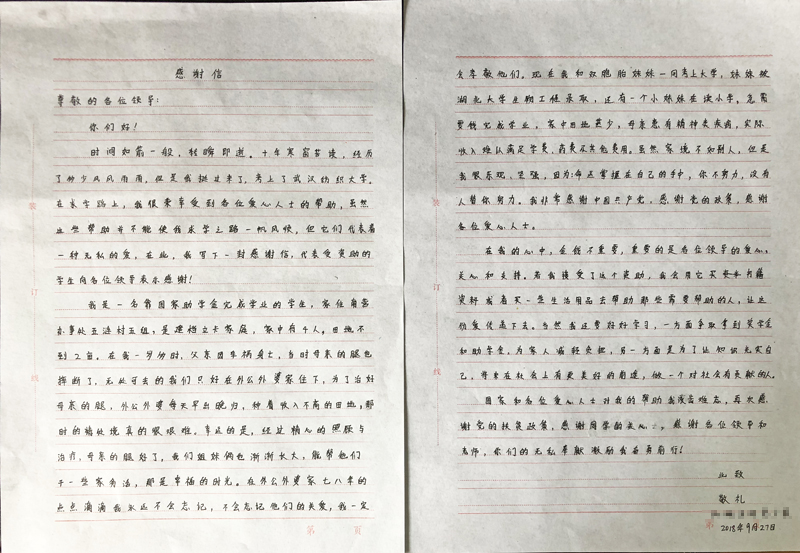 感谢信
尊敬的各位领导：
你们好！
时间如箭一般，转瞬即逝。十年寒窗苦读，经历
了多少风风雨雨，但是我挺过来了，考上了武汉纺织大学。
在求学路上，我很荣幸受到各位爱心人士的帮助，虽然
这些帮助并不能使我求学之路一帆风顺，但它们代表着
一种无私的爱，在此，我写下一封感谢信，代表受资助的
学生向各位领导表示感谢！
我是一名靠国家助学金完成学业的学生，家住
办事处五涟村五组，是建档立卡家庭，家中有4人，田地不
到2亩。在我一岁份时，父亲因车祸身亡，当时母亲的腿也
摔断了，无处可去的我们只好在外公外婆家住下，为了治好
母亲的腿，外公外婆每天早出晚归，种着收入不高的田地，那
时的情处境真的艰艰难，幸运的是，经过精心的照顾与
治疗，母亲的腿好了，我们姐妹俩也渐渐长大，能帮他们
干一些家务活，那是幸福的时光。在外公外婆家七八年的
点点滴滴我永远不会忘记，不会忘记他们的关爱，我一定
第 页
会孝敬他们。现在我和双胞胎妹妹一同考上大学，妹妹被
湖北大学生物工程录取，还有一个小妹妹在读小学。急需
要钱完成学业，家中田地甚少，母亲患有精神类疾病，实际
收入难以满足学费、药费及其他费用。虽然家境不如别人，但是
我很乐观、坚强，因为命运掌握在自己的手中，你不努力，没有
人替你努力。我非常感谢中国共产党，感谢党的政策，感谢
各位爱心人士。
在我的心中，金钱不重要，重要的是各位领导的爱心、
关心和支持。若我接受了这个资助，我会用它买书籍
资料或者买一些生活用品去帮助那些需要帮助的人，让这
份爱传递下去。当然我还要好好学习，一方面争取拿到奖学金
和助学金，为家人减轻负担，另一方面是为了让知识充实自
己，将来在社会上有更美好的前途，做一个对社会有贡献的人。
国家和各位爱心人士对我的帮助我没齿难忘，再次感
谢党的扶贫政策，感谢同学的关心，感谢各位领导和
老师，你们的无私奉献激励我奋勇前行！
此致
敬礼
第
2018年9月27日
装
订
线
装
订
线